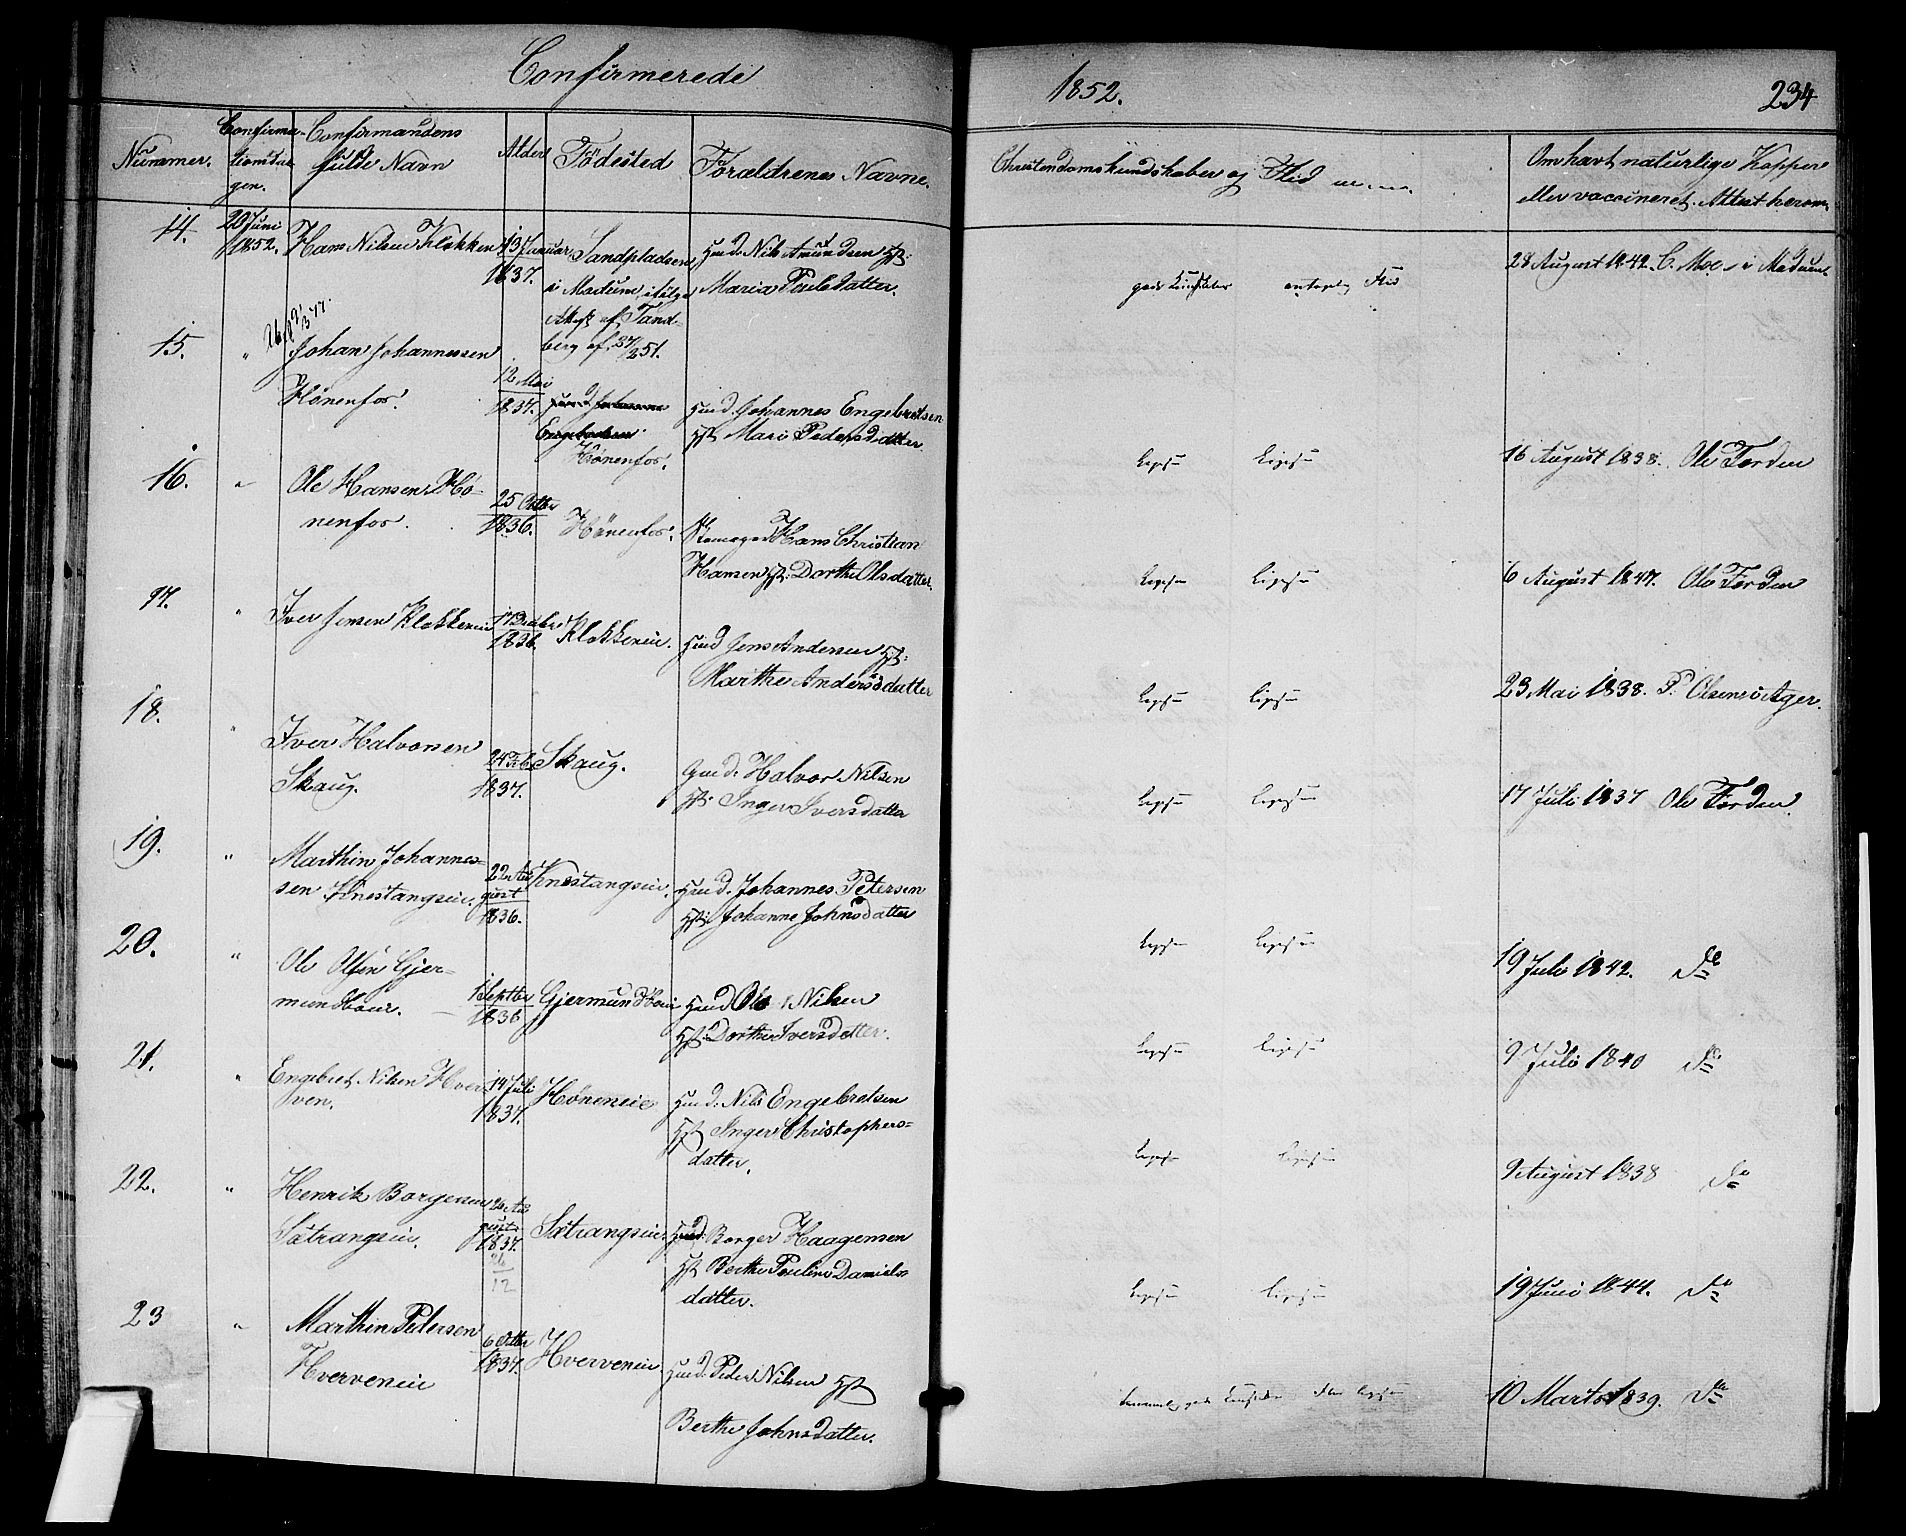 Confirmerede
1852.
234
Nummer.
Confirma-
tionsda-
gen.
Confirmandens
fulde Navn
Alder
Födested
Forældrenes Navne.
Christendomskundskaber og Flid m.m.
Om havt naturlige Kopper
eller vaccineret. Attest herom.
14.
20 Juni
1852.
Hans Nilsen Klokken
13 Januar
1837.
Sandpladsen
i Modum, ifölge
Attest af Tand-
berg af 27/2 51.
Huusmd. Nils Amundsen Hst:
Maria Pouls datter.
gode Kundskaber antagelig Flid
28 August 1842. C. Moe i Modum
15.
"
Johan Johannessen
Hönenfos.
12 Mai
1837.
Hönenfos.
Huusmd. Johannes Engebretsen
Hst Mari Pedersdatter
Ligesaa Ligesaa
16 August 1838. Ole Förden
16.
"
Ole Hansen Hö-
nenfos.
25 Octbr
1836.
Hönenfos.
Hans Christian
Hansen Hst: Dorthe Olsdatter.
Ligesaa Ligesaa
6 August 1847. Ole Förden
17.
"
Iver Jensen Klokkereie
17 Decbr
1836.
Klokkereie.
Huusmd Jens Andersen Hst:
Marthe Andersdatter
Ligesaa Ligesaa
23 Mai 1838. P. Olsen Ager.
18.
"
Iver Halvorsen
Skaug.
24 Feb
1837.
Skaug.
Gmd. Halvor Nilsen
Hst: Inger Iversdatter
Ligesaa Ligesaa
17 Juli 1837 Ole Förden.
19.
"
Marthin Johannes-
sen Knestangseie.
22 Au
gust
1836.
Knestangseie.
Huusmd. Johannes Petersen
Hst: Johanne Johnsdatter
Ligesaa Ligesaa
19 Juli 1842. do
20.
"
Ole Olsen Gjer-
mundboeie.
1 Septbr
1836
Gjermundboeie
Huusmd Ole Nilsen
Hst: Dorthe Iversdatter.
Ligesaa Ligesaa
9 Juli 1840 do
21.
"
Engebret Nilsen Hver-
ven.
14 Juli
1837.
Höneneie
Huusmd. Nils Engebretsen
Hst Inger Christophers-
datter.
Ligesaa Ligesaa
9 August 1838 do
22.
"
Henrik Borgersen
Sætrangseie.
26 Au
gust
1837.
12
Sætrangseie.
Huusmd: Borger Haagensen
Hst Berthe Pouline Daniels-
datter.
Ligesaa Ligesaa
19 Juni 1844. do
23
"
Marthin Petersen
Hverveneie
6 Octbr
1837.
Hverveneie.
Huusmd. Peder Nilsen Hst
Berthe Johnsdatter.
10 Marts 1839. do